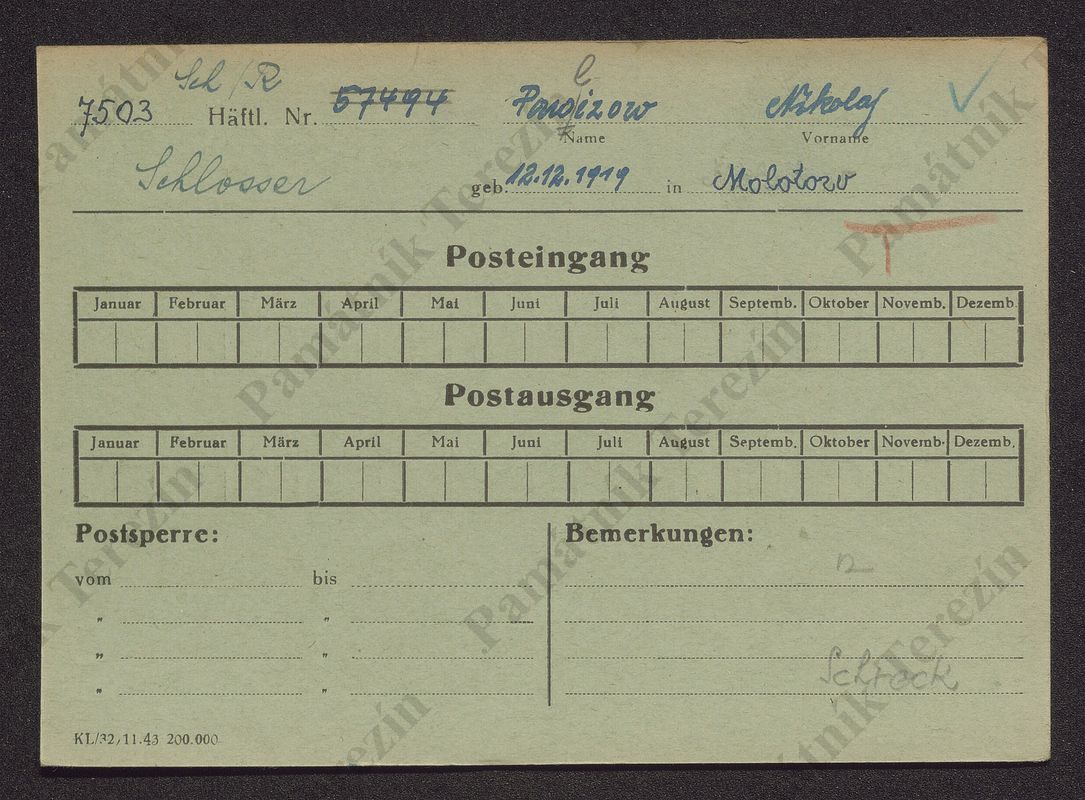 Sch/R
7503 Häftl. Nr. 57494 Pargizow Nikolaj
Name Vorname
Schlosser geb. 12.12.1919 in Molotow
Posteingang
Januar Februar März April Mai Juni Juli August Septemb. Oktober Novemb. Dezemb.
Postausgang
Januar Februar März April Mai Juni Juli August Septemb. Oktober Novemb. Dezemb.
Postsperre: Bemerkungen:
vom bis
" "
" "
" "
Schrock
KL/32/11.43 200.000
Památník Terezín